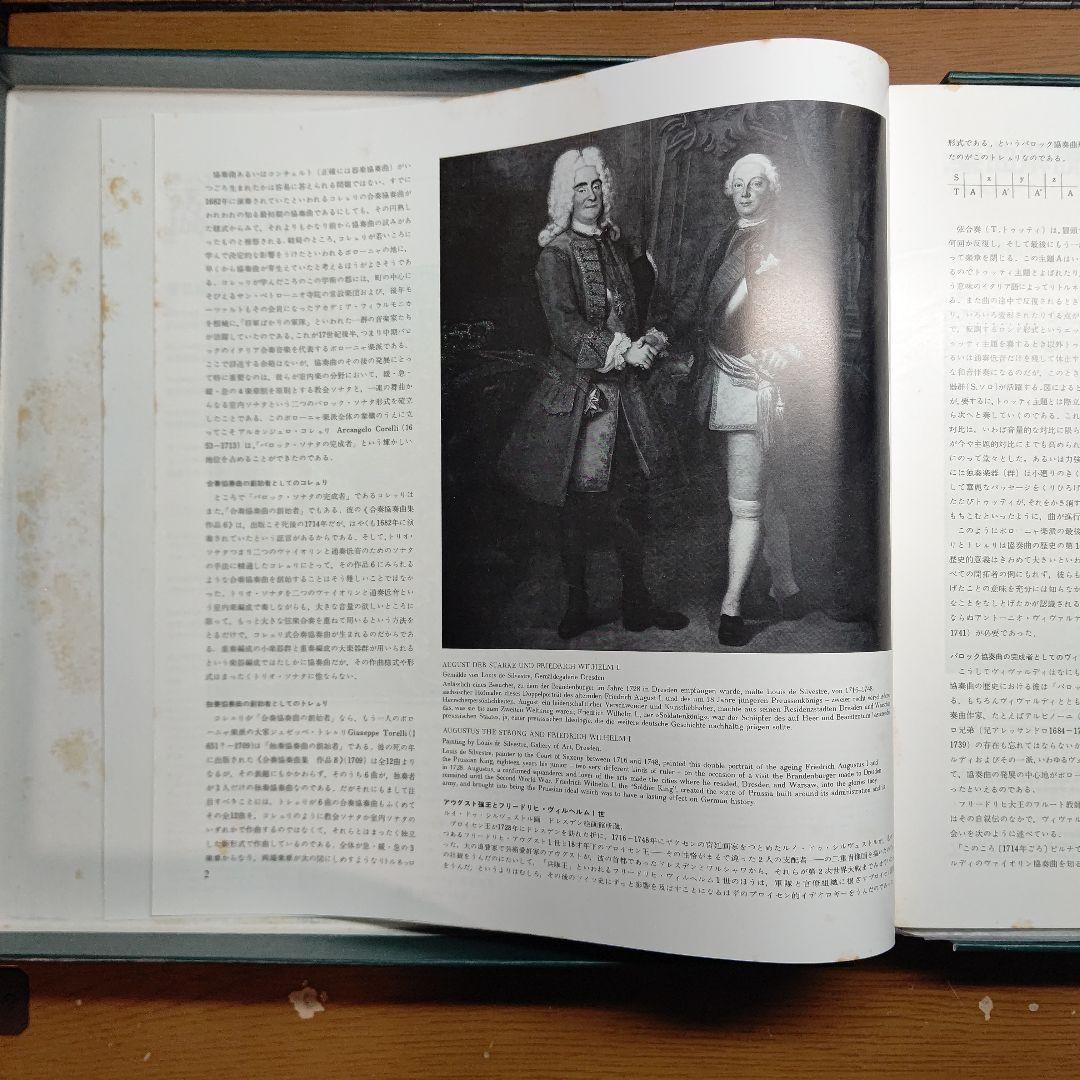 協奏曲あるいはコンチェルト(正確には器楽協奏曲)がい
つごろ生まれたかは容易に答えられる問題ではない。すでに
1682年に演奏されていたといわれるコレルリの合奏協奏曲が
われわれの知る最初期の協奏曲であるにしても、その円熟し
た様式からみて、それよりもかなり前から協奏曲の試みがあ
ったものと推察される。結局のところ、コレルリが若いころに
学んで決定的な影響をうけたといわれるボローニャの地に、
早くから協奏曲が芽生えていたと考えるほうがよさそうであ
る。コレルリが学んだころのこの学術の都には、町の中心に
そびえるサン・ペトローニオ寺院の常設楽団および、後年モ
ーツァルトもその会員になったアカデミア・フィラルモニカ
を根城に、「将軍ばかりの軍隊」といわれた一群の音楽家たち
が活躍していたのである。これが17世紀後半、つまり中期バロ
ックのイタリア合奏音楽を代表するボローニャ楽派である。
ここで詳述する余裕はないが、協奏曲のその後の発展にとっ
て特に重要なのは、彼らが室内楽の分野において、緩・急・
緩・急の4楽章制を原則とする教会ソナタと、一連の舞曲か
らなる室内ソナタという二つのバロック・ソナタ形式を確立
したことである。このボローニャ楽派全体の業績のうえに立
ってこそアルカンジェロ・コレルリ Arcangelo Corelli (16
53−1713)は、「バロック・ソナタの完成者」という輝かしい
地位を占めることができたのである。
合奏協奏曲の創始者としてのコレルリ
ところで「バロック・ソナタの完成者」であるコレルリは
また、「合奏協奏曲の創始者」でもある。彼の《合奏協奏曲集
作品6》は、出版こそ死後の1714年だが、はやくも1682年に演
奏されていたという証言があるからである。そして、トリオ・
ソナタつまり二つのヴァイオリンと通奏低音のためのソナタ
の手法に精通したコレルリにとって、その作品6にみられる
ような合奏協奏曲を創始することはそう難しいことではなか
った。トリオ・ソナタを二つのヴァイオリンと通奏低音とい
う室内楽編成で奏しながらも、大きな音量の欲しいところに
限って、もっと大きな弦楽合奏を重ねて用いるという方法を
とるだけで、コレルリ式合奏協奏曲が生まれるのだからであ
る。重奏編成の小楽器群と重奏編成の大楽器群が用いられる
という楽器編成ではたしかに協奏曲だが、その作曲様式や形
式はまったくトリオ・ソナタに他ならない。
独奏協奏曲の創始者としてのトレルリ
コレルリが「合奏協奏曲の創始者」なら、もう一人のボロ
ーニャ楽派の大家ジュゼッペ・トレルリGiuseppe Torelli (1
651?−1709)は「独奏協奏曲の創始者」である。彼の死の年
に出版された《合奏協奏曲集 作品8》(1709)は全12曲より
なるが、その表題にもかかわらず、そのうち6曲が、独奏者
が1人だけの独奏協奏曲なのである。だがそれにもまして注
目すべきことには、トレルリが6曲の合奏協奏曲もふくめて
その全12曲を、コレルリのように教会ソナタか室内ソナタの
いずれかで作曲するのではなくて、それらとはまったく独立
した新形式で作曲しているのである。全体が急・緩・急の3
楽章からなり、両端楽章が次の図にしめすようなリトルネッロ
2
AUGUST DER STARKE UND FRIEDRICH WILHELM I.
Gemälde von Louis de Silvestre, Gemäldegalerie Dresden
Anlässlich eines Besuches, zu dem der Brandenburger im Jahre 1728 in Dresden empfangen wurde, malte Louis de Silvestre, von 1716–1748
sächsischer Hofmaler, dieses Doppelporträt des alternden Friedrich August I. und des um 18 Jahre jüngeren Preussenkönigs – zweier recht
Herrscherpersönlichkeiten. August, ein leidenschaftlicher Verschwender und Kunstliebhaber, machte aus seinen Residenzstädten Dresden und
das, was sie bis zum Zweiten Weltkrieg waren; Friedrich Wilhelm I., der «Soldatenkönig», war der Schöpfer des auf Heer und Beamtentum
preussischen Staates, ja, einer preussischen Ideologie, die die weitere deutsche Geschichte nachhaltig prägen sollte.
AUGUSTUS THE STRONG AND FRIEDRICH WILHELM I
Painting by Louis de Silvestre, Gallery of Art, Dresden.
Louis de Silvestre, painter to the Court of Saxony between 1716 and 1748, painted this double portrait of the ageing Friedrich Augustus I and
the Prussian King, eighteen years his junior – two very different kinds of ruler – on the occasion of a visit the Brandenburger made to Dresden
in 1728. Augustus, a confirmed squanderer and lover of the arts made the cities where he resided, Dresden, and Warsaw, into the glories they
remained until the Second World War. Friedrich Wilhelm I, the "Soldier King", created the state of Prussia built around its administration and its
army, and brought into being the Prussian ideal which was to have a lasting effect on German history.
アウグスト強王とフリードリヒ・ヴィルヘルム1世
ルイ・ドゥ・シルヴェストル画 ドレスデン絵画館所蔵。
形式である、というバロック協奏曲
たのがこのトレルリなのである。
S x y z
T A A′ A″ A
弦合奏(T.トゥッティ)は、冒頭
何回か反復し、そして最後にもう一
って楽章を閉じる。この主題Aはい
るのでトゥッティ主題とよばれたり
う意味のイタリア語によってリトルネ
る。また曲の途中で反復されるとき
り、いろいろ変形されたりする点が
で、転調するロンド形式というニ
ゥッティ主題を奏するとき以外トゥ
るいは通奏低音だけを残して休止す
な和音伴奏になるのだが、このとき
器群(S.ソロ)が活躍する。図による
が、要するに、トゥッティ主題とは際立
ら次へと奏していくのである。これ
対比は、いわば音量的な対比に限ら
が今や主題的対比にまでも高められ
にのって堂々とした。あるいは力強
には独奏楽器(群)は小廻りのきく
して華麗なパッセージをくりひろげ
たたびトゥッティが、それをかき消す
もちこむといったように、曲が進行
このようにボローニャ楽派の最後
リとトレルリは協奏曲の歴史の第1
歴史的意義はきわめて大きいといわ
べての開拓者の例にもれず、彼らも
げたことの意味を充分には知らなか
なことをなしとげたかが認識される
ならぬアントーニオ・ヴィヴァルデ
1741)が必要であった。
バロック協奏曲の完成者としてのヴィ
こうしてヴィヴァルディはなにも
協奏曲の歴史における彼は「バロ
る。もちろんヴィヴァルディととも
奏曲作家、たとえばアルビノーニ(
ロ兄弟(兄アレッサンドロ1684−17
1739)の存在も忘れてはならないか
ルディおよびその一派、いわゆるヴェ
て、協奏曲の発展の中心地がボロー
ったといえるのである。
フリードリヒ大王のフルート教師
はその自叙伝のなかで、ヴィヴァル
会いを次のように述べている。
「このころ(1714年ごろ)ピルナで
ルディのヴァイオリン協奏曲を知る